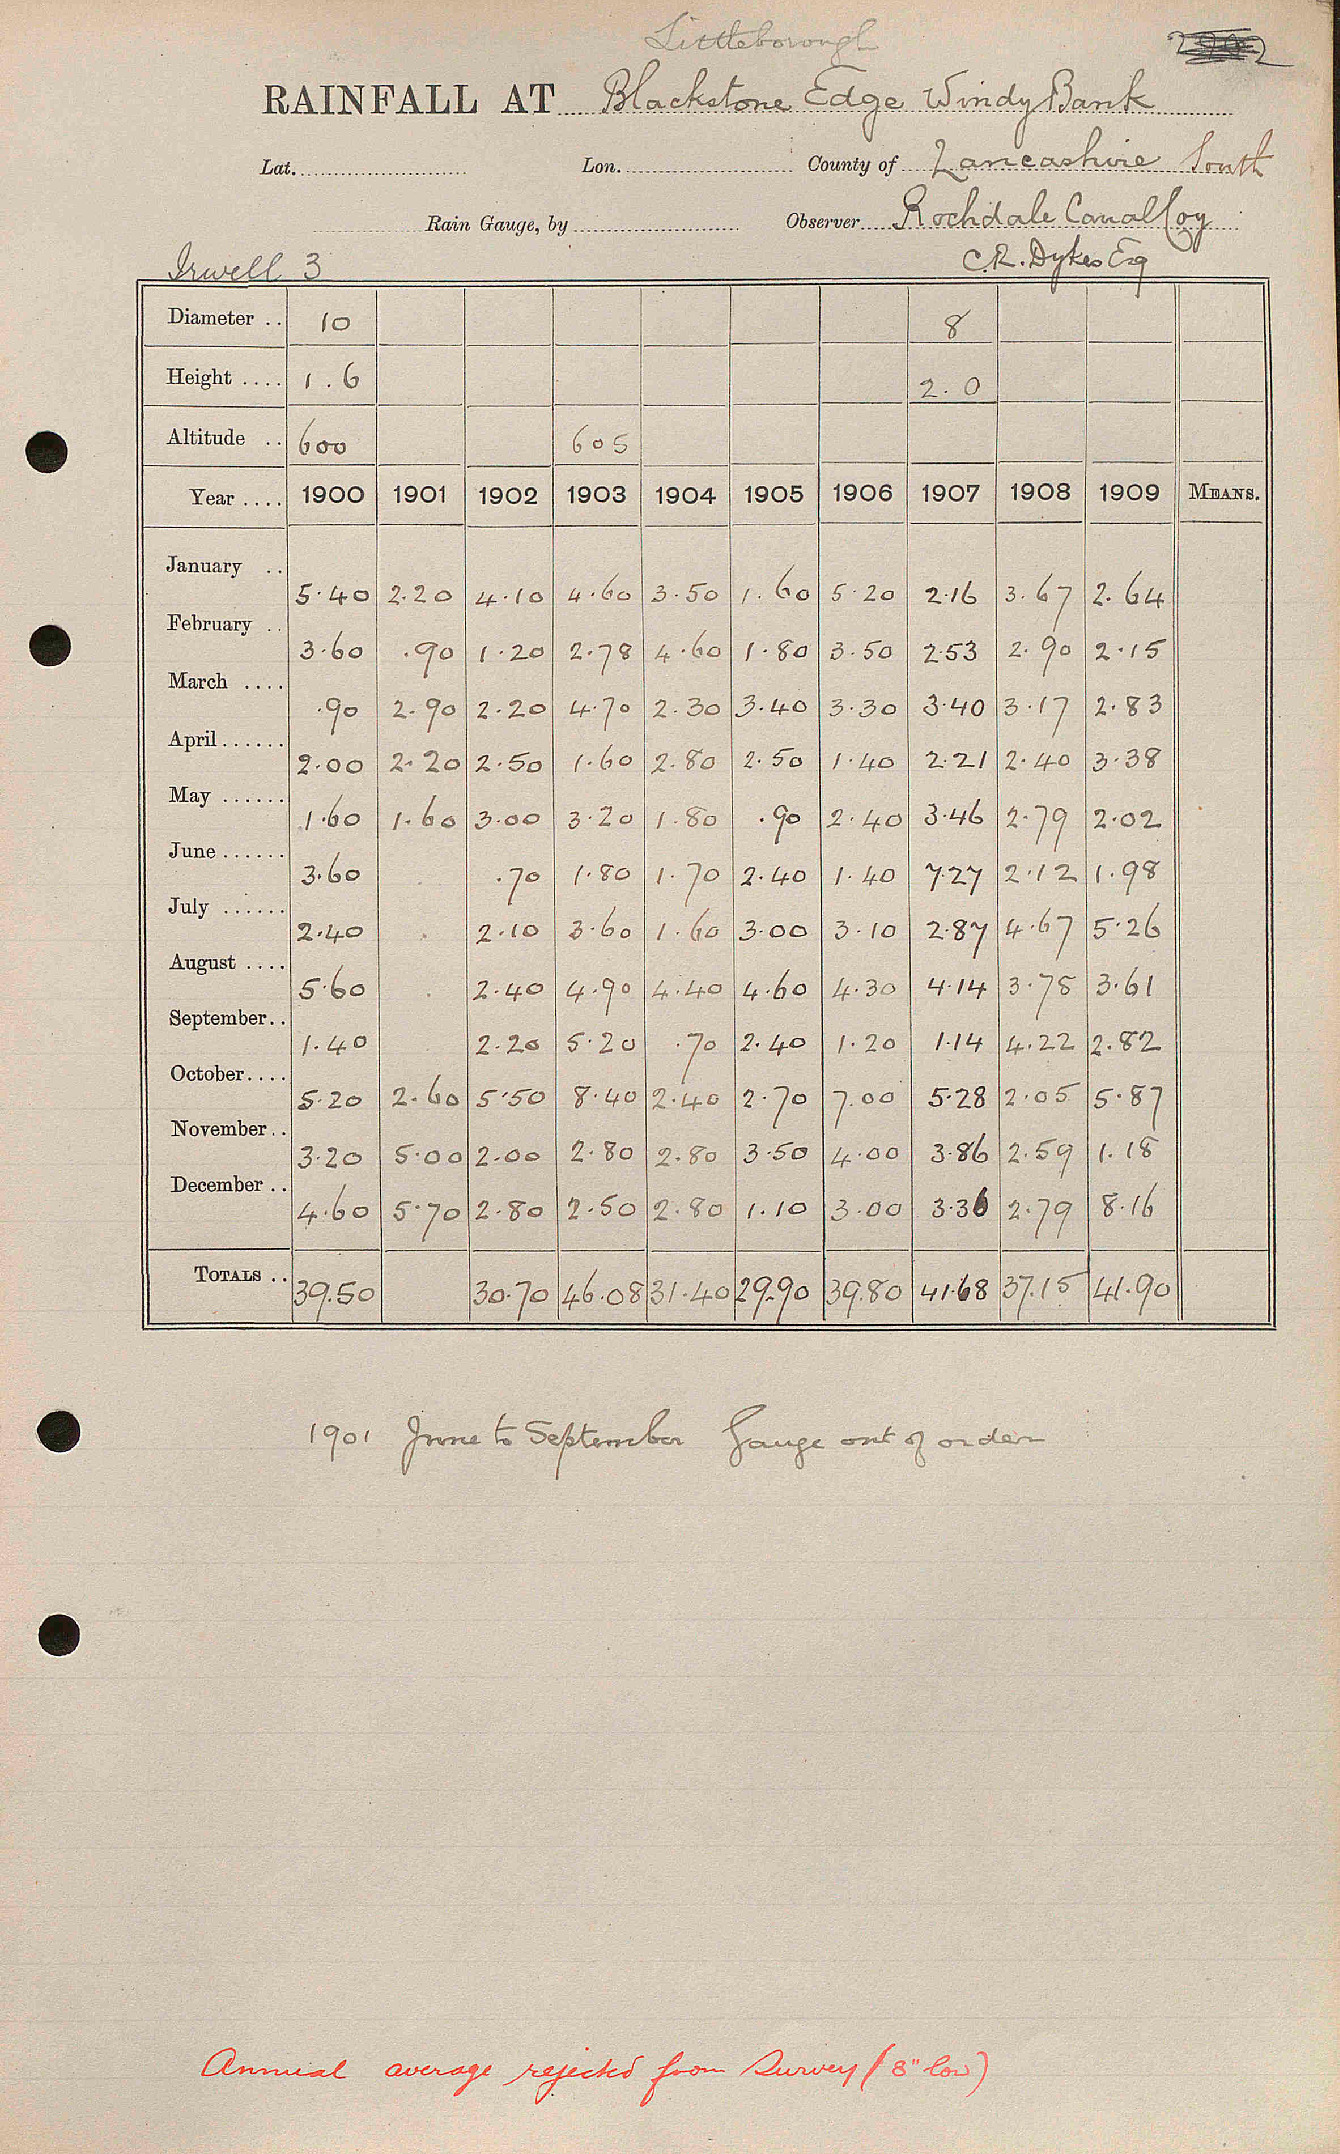 Littleborough
RAINFALL AT Blackstone Edge Windy Bank
Lat. Lon. County of Lancashire South
Rain Gauge, by Observer Rochdale Canal Coy
Irwell 3 C.R. Dykes Esq
Diameter .. 10 8
Height .... 1.6 2.0
Altitude .. 600 605
Year .... 1900 1901 1902 1903 1904 1905 1906 1907 1908 1909 MEANS.
January .. 5.40 2.20 4.10 4.60 3.50 1.60 5.20 2.16 3.67 2.64
February .. 3.60 .90 1.20 2.78 4.60 1.80 3.50 2.53 2.90 2.15
March .... .90 2.90 2.20 4.70 2.30 3.40 3.30 3.40 3.17 2.83
April ...... 2.00 2.20 2.50 1.60 2.80 2.50 1.40 2.21 2.40 3.38
May ...... 1.60 1.60 3.00 3.20 1.80 .90 2.40 3.46 2.79 2.02
June ...... 3.60 .70 1.80 1.70 2.40 1.40 7.27 2.12 1.98
July ...... 2.40 2.10 3.60 1.60 3.00 3.10 2.87 4.67 5.26
August .... 5.60 2.40 4.90 4.40 4.60 4.30 4.14 3.78 3.61
September.. 1.40 2.20 5.20 .70 2.40 1.20 1.14 4.22 2.82
October.... 5.20 2.60 5.50 8.40 2.40 2.70 7.00 5.28 2.05 5.87
November.. 3.20 5.00 2.00 2.80 2.80 3.50 4.00 3.86 2.59 1.18
December .. 4.60 5.70 2.80 2.50 2.80 1.10 3.00 3.36 2.79 8.16
TOTALS .. 39.50 30.70 46.08 31.40 29.90 39.80 41.68 37.15 41.90
1901 June to September Gauge out of order
Annual average rejected from Survey (8" low)